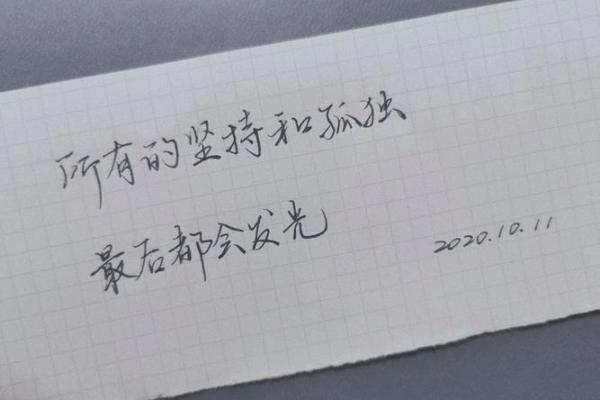 所有的坚持和孤独
最后都会发光
2020.10.11